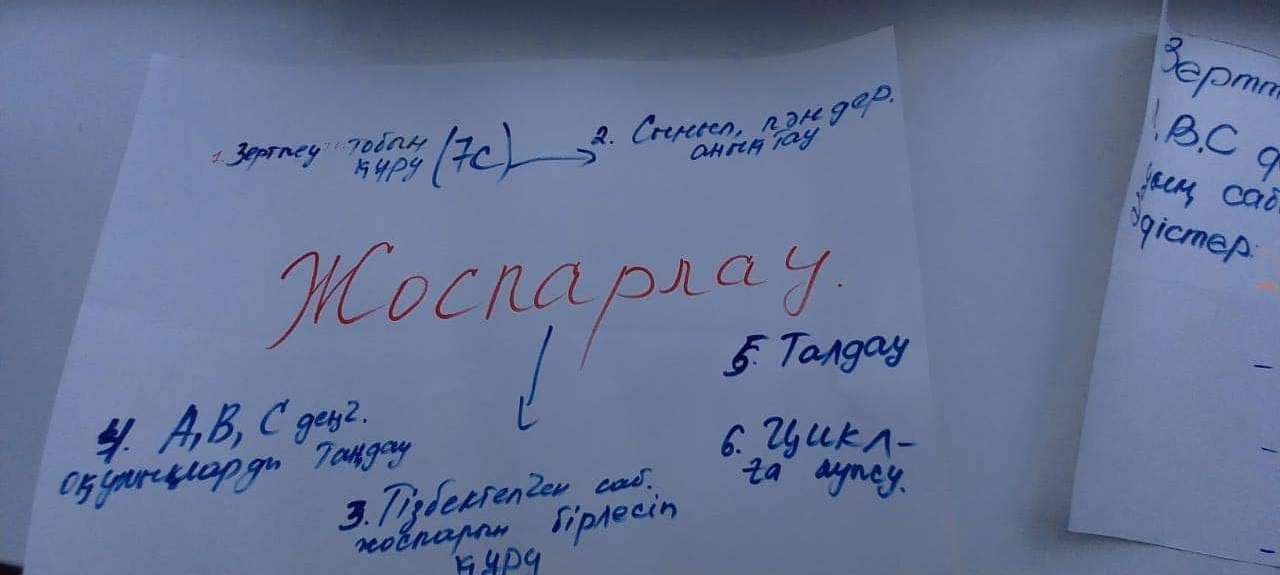 1. Зерттеу тобын
құру (7С)
2. Сынып, пәндер.
анықтау
Жоспарлау.
5. Талдау
4. А, В, С деңг.
оқушыларды таңдау
6. Цикл-
ға
3. Тізбектелген саб.
жоспарын бірлесіп
құру
В.С
саб
дістер.